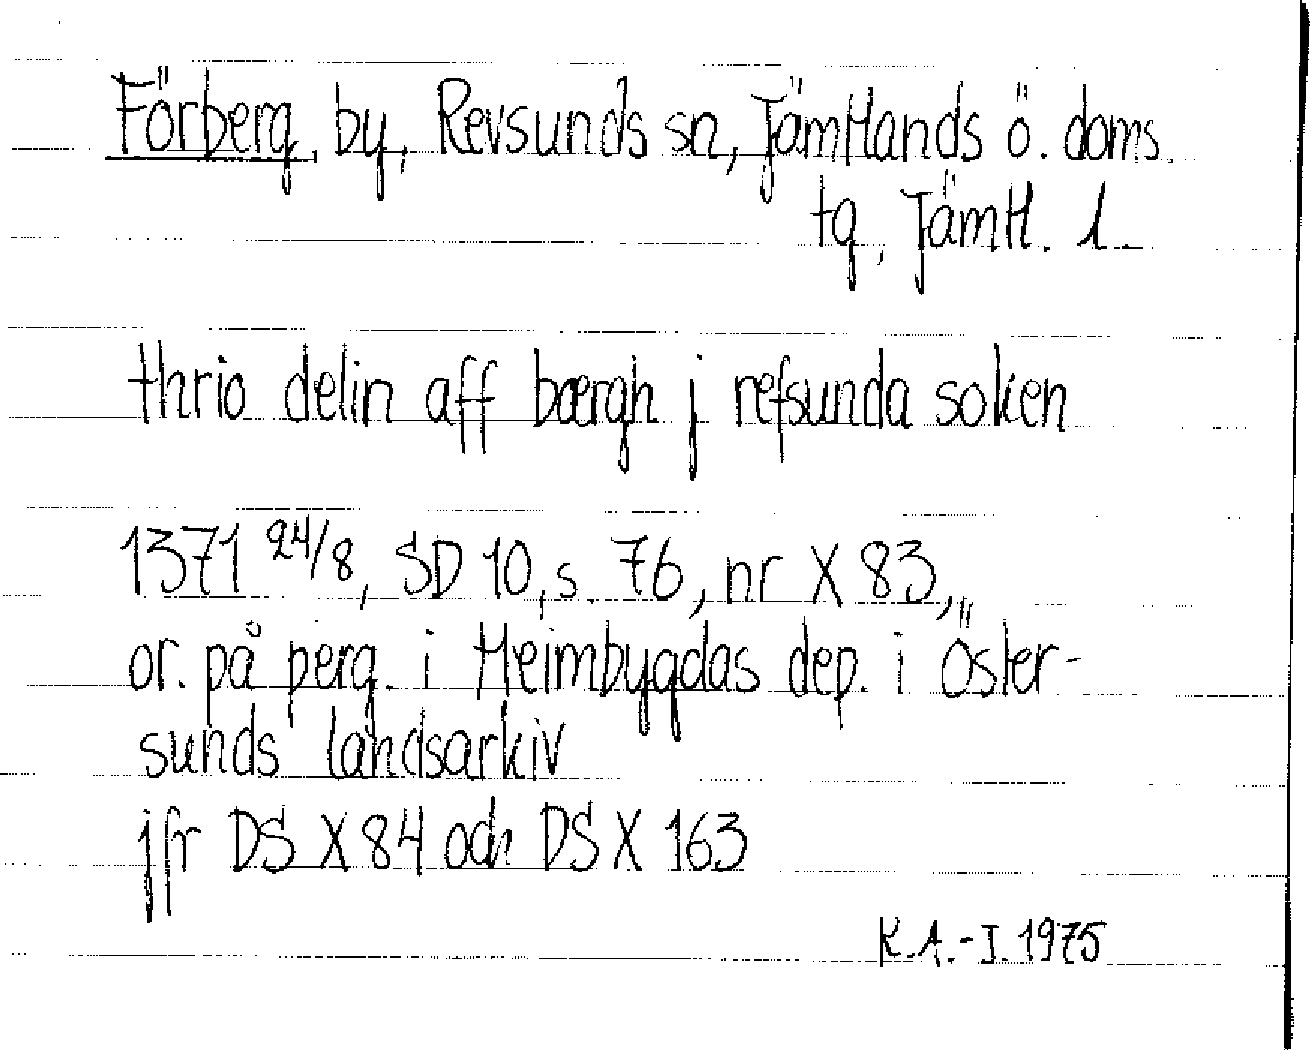 Förberg, by, Revsunds sn, Jämtlands ö. doms.
tg, Jämtl. l.
thrio delin aff bærgh j refsunda soken
1371 24/8, SD 10, s. 76, nr X 83,
or. på perg. i Heimbygdas dep. i Öster-
sunds landsarkiv
jfr DS X 84 och DS X 163
K.A.-I. 1975